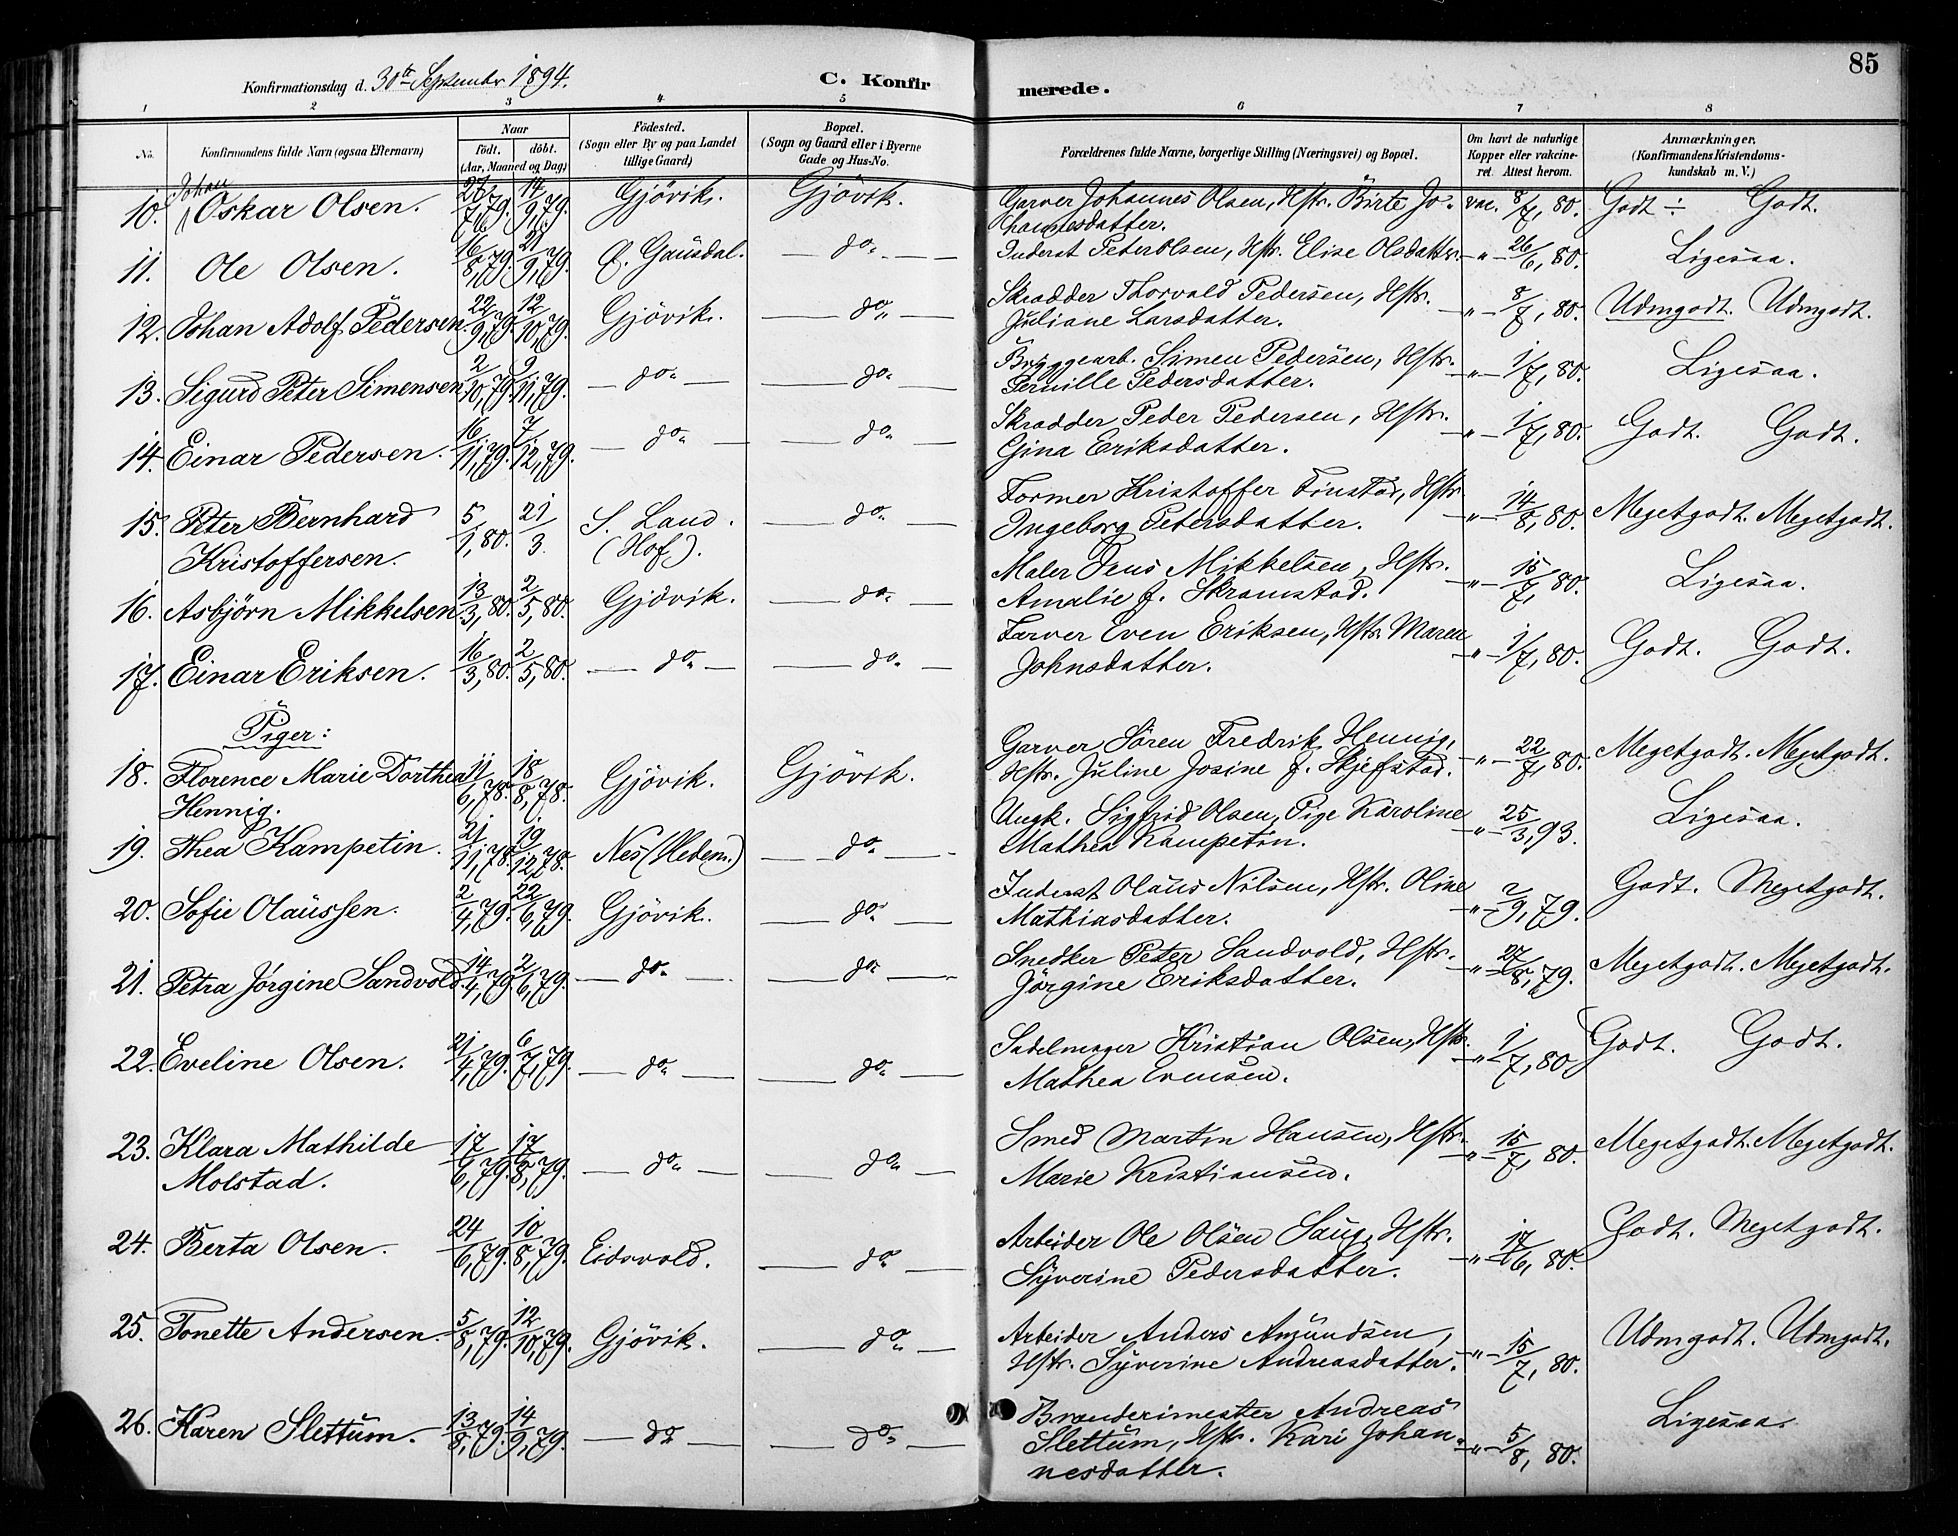 85
Konfirmationsdag d. 30te Septembr 1894.
C. Konfir merede.
1 2 3 4 5 6 7 8
No. Konfirmandens fulde Navn (ogsaa Efternavn) Naar födt. döbt. (Aar, Maaned og Dag) Födested. (Sogn eller By og paa Landet tillige Gaard) Bopæl. (Sogn og Gaard eller i Byerne Gade og Hus-No. Forældrenes fulde Navne, borgerlige Stilling (Næringsvei) og Bopæl. Om havt de naturlige Kopper eller vakcineret. Attest herom. Anmærkninger, (Konfirmandens Kristendomskundskab m. V.)
10. Johan Oskar Olsen. 27/7, 79. 14/9, 79. Gjövik. Gjövik. Garver Johannes Olsen, Hstr. Birte Jo- vac. 8/7, 80. Godt ÷ Godt.
hannesdatter.
11. Ole Olsen. 16/8, 79. 21/9, 79. Ø. Gausdal. — do — Inderst Peter Olsen, Hstr. Elise Olsdatter. —"— 26/6, 80. Ligesaa.
12. Johan Adolf Pedersen. 22/9, 79. 12/10, 79. Gjövik. — do — Skrædder Thorvald Pedersen, Hstr. —"— 8/7, 80. Udmgodt. Udmgodt.
Juliane Larsdatter.
13. Sigurd Peter Simensen 2/10, 79. 9/11, 79. — do — — do — Bryggearb. Simen Pedersen, Hstr. —"— 1/7, 80. Ligesaa.
Pernille Pedersdatter.
14. Einar Pedersen. 16/11, 79. 7/12, 79. — do — — do — Skrædder Peder Pedersen, Hstr. —"— 1/7, 80. Godt. Godt.
Gina Eriksdatter.
15. Peter Bernhard 5/1, 80. 21/3. S. Land. — do — Former Kristoffer Finstad, Hstr. —"— 14/8, 80. Megetgodt. Megetgodt.
Kristoffersen. (Hof). Ingeborg Petersdatter.
16. Asbjörn Mikkelsen 13/3, 80. 2/5, 80. Gjövik. — do — Maler Mikkelsen, Hstr. —"— 15/7, 80. Ligesaa.
Amalie f. Skramstad.
17. Einar Eriksen. 16/3, 80. 2/5, 80. — do — — do — Farver Even Eriksen, Hstr. Maren —"— 1/7, 80. Godt. Godt.
Johnsdatter.
Piger:
18. Florence Marie Dorthea 11/6, 78. 18/8, 78. Gjövik. Gjövik. Garver Sören Fredrik Hennig, —"— 22/7, 80. Megetgodt. Megetgodt.
Hennig. Hstr. Juline Josine f. Skjefstad.
19. Thea Kampetin. 21/11, 78. 19/12, 78. Nes (Hedem.) — do — Ungk. Sigfrid Olsen, Pige Karoline —"— 25/3, 93. Ligesaa.
Mathea Kampetin.
20. Sofie Olaussen. 2/4, 79. 22/6, 79. Gjövik. — do — Inderst Olaus Nilsen, Hstr. Oline —"— 2/9, 79. Godt. Megetgodt.
Mathiasdatter.
21. Petra Jørgine Sandvold. 14/4, 79. 2/6, 79. — do — — do — Snedker Peter Sandvold, Hstr. —"— 27/8, 79. Megetgodt. Megetgodt.
Jörgine Eriksdatter.
22. Eveline Olsen. 21/4, 79. 6/7, 79. — do — — do — Sadelmager Kristian Olsen, Hstr. —"— 1/7, 80. Godt. Godt.
Mathea Evensen.
23. Klara Mathilde 17/6, 79. 17/8, 79. — do — — do — Smed Martin Hansen, Hstr. —"— 15/7, 80. Megetgodt. Megetgodt.
Molstad. Marie Kristiansen.
24. Berta Olsen. 24/6, 79. 10/8, 79. Eidsvold. — do — Arbeider Ole Olsen Haug, Hstr. —"— 17/6, 80. Godt. Megetgodt.
Syverine Pedersdatter.
25. Tonette Andersen. 5/8, 79. 12/10, 79. Gjövik. — do — Arbeider Anders Amundsen, —"— 15/7, 80. Udmgodt. Udmgodt.
Hstr. Syverine Andreasdatter.
26. Karen Slettum. 13/8, 79. 14/9, 79. — do — — do — Brænderimester Andreas —"— 5/8, 80. Ligesaa.
Slettum, Hstr. Kari Johan-
nesdatter.